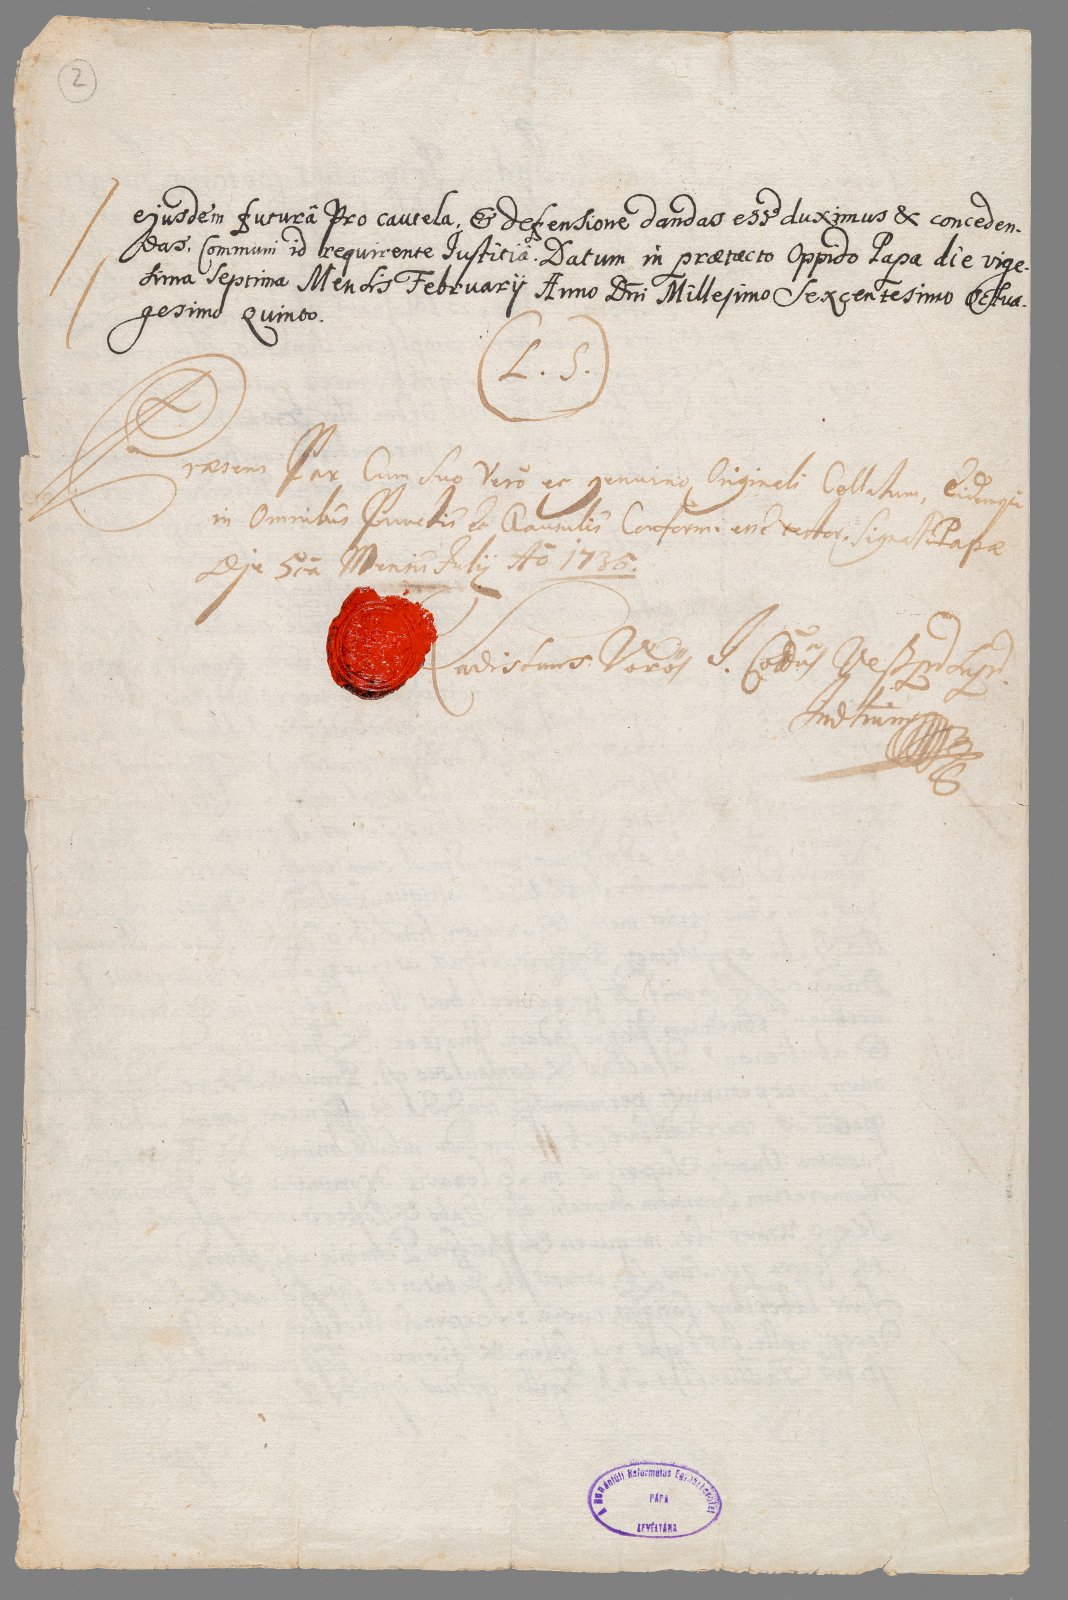 2
ejusdem futurã Pro cautela, & defensione dandas esse duximus & conceden-
das, Communi id requirente Justitiâ. Datum in prætacto Oppido Papa die vige-
sima Septima Mensis Februarij Anno Dni Millesimo Sexcentesimo Octua-
gesimo quinto.
(L. S.)
Præsens Par Cum suo Vero ec genuino Originali Collatum, Eidemque
in Omnibus Punctis & Clausulis Conforme esse testor. Signat. Papæ
Die 5ta Mensis Julij Aõ 1735.
Ladislaus Vörös J.
A Dunántúli Református Egyházkerület
PÁPA
LEVÉLTÁRA